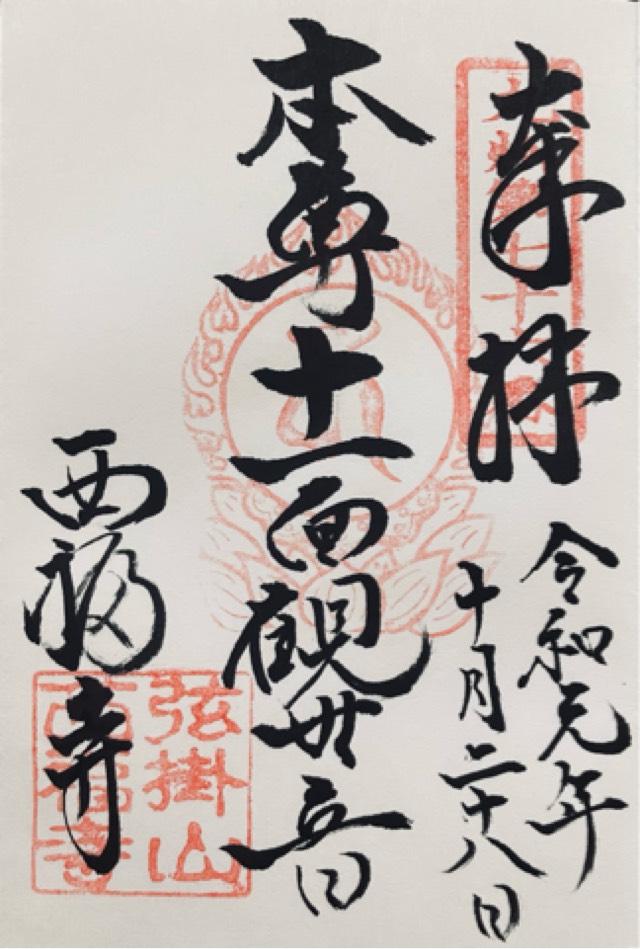 奉拝
令和元年
十月二十八日
本尊十一面観世音
西福寺
弦掛山
西福寺